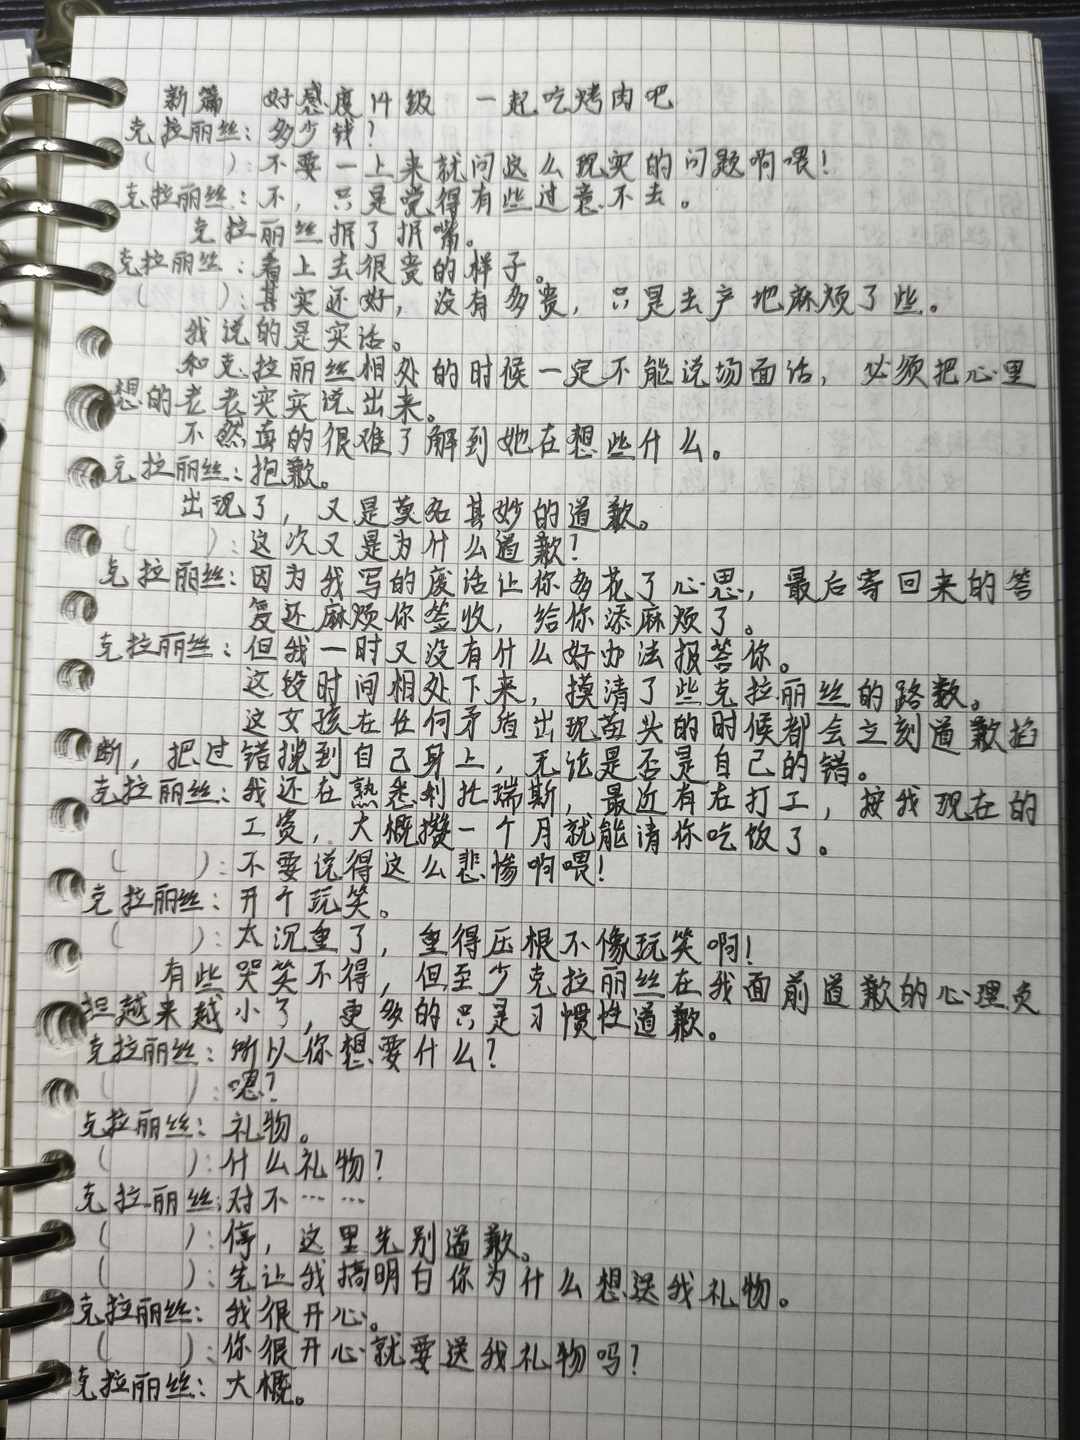 新篇 好感度14级 一起吃烤肉吧
克拉丽丝：多少钱？
（ ）：不要一上来就问这么现实的问题啊喂！
克拉丽丝：不，只是觉得有些过意不去。
克拉丽丝抿了抿嘴。
克拉丽丝：看上去很贵的样子。
（ ）：其实还好，没有多贵，只是去产地麻烦了些。
我说的是实话。
和克拉丽丝相处的时候一定不能说场面话，必须把心里
想的老老实实说出来。
不然真的很难了解到她在想些什么。
克拉丽丝：抱歉。
出现了，又是莫名其妙的道歉。
（ ）：这次又是为什么道歉？
克拉丽丝：因为我写的废话让你多花了心思，最后寄回来的答
复还麻烦你签收，给你添麻烦了。
克拉丽丝：但我一时又没有什么好办法报答你。
这段时间相处下来，摸清了些克拉丽丝的路数。
这女孩在任何矛盾出现苗头的时候都会立刻道歉掐
断，把过错揽到自己身上，无论是否是自己的错。
克拉丽丝：我还在熟悉利扎瑞斯，最近有在打工，按我现在的
工资，大概攒一个月就能请你吃饭了。
（ ）：不要说得这么悲惨啊喂！
克拉丽丝：开个玩笑。
（ ）：太沉重了，重得压根不像玩笑啊！
有些哭笑不得，但至少克拉丽丝在我面前道歉的心理负
担越来越小了，更多的只是习惯性道歉。
克拉丽丝：所以你想要什么？
（ ）：嗯？
克拉丽丝：礼物。
（ ）：什么礼物？
克拉丽丝：对不……
（ ）：停，这里先别道歉。
（ ）：先让我搞明白你为什么想送我礼物。
克拉丽丝：我很开心。
（ ）：你很开心就要送我礼物吗？
克拉丽丝：大概。